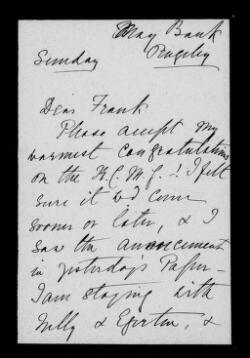 May Bank
Rugeley
Sunday
Dear Frank
Please accept my
warmest congratulations
on the K.C.M.G. I felt
sure it wd come
sooner or later, & I
saw the announcement
in yesterday's Paper –
I am staying with
Nelly & Egerton, &